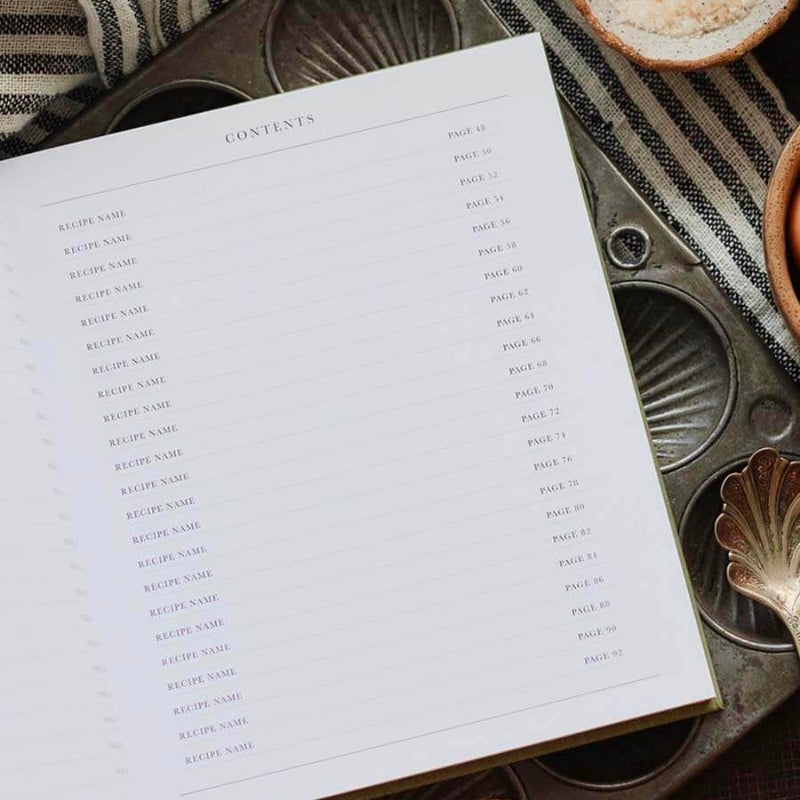 CONTENTS
RECIPE NAME PAGE 48
RECIPE NAME PAGE 50
RECIPE NAME PAGE 52
RECIPE NAME PAGE 54
RECIPE NAME PAGE 56
RECIPE NAME PAGE 58
RECIPE NAME PAGE 60
RECIPE NAME PAGE 62
RECIPE NAME PAGE 64
RECIPE NAME PAGE 66
RECIPE NAME PAGE 68
RECIPE NAME PAGE 70
RECIPE NAME PAGE 72
RECIPE NAME PAGE 74
RECIPE NAME PAGE 76
RECIPE NAME PAGE 78
RECIPE NAME PAGE 80
RECIPE NAME PAGE 82
RECIPE NAME PAGE 84
RECIPE NAME PAGE 86
RECIPE NAME PAGE 88
RECIPE NAME PAGE 90
RECIPE NAME PAGE 92